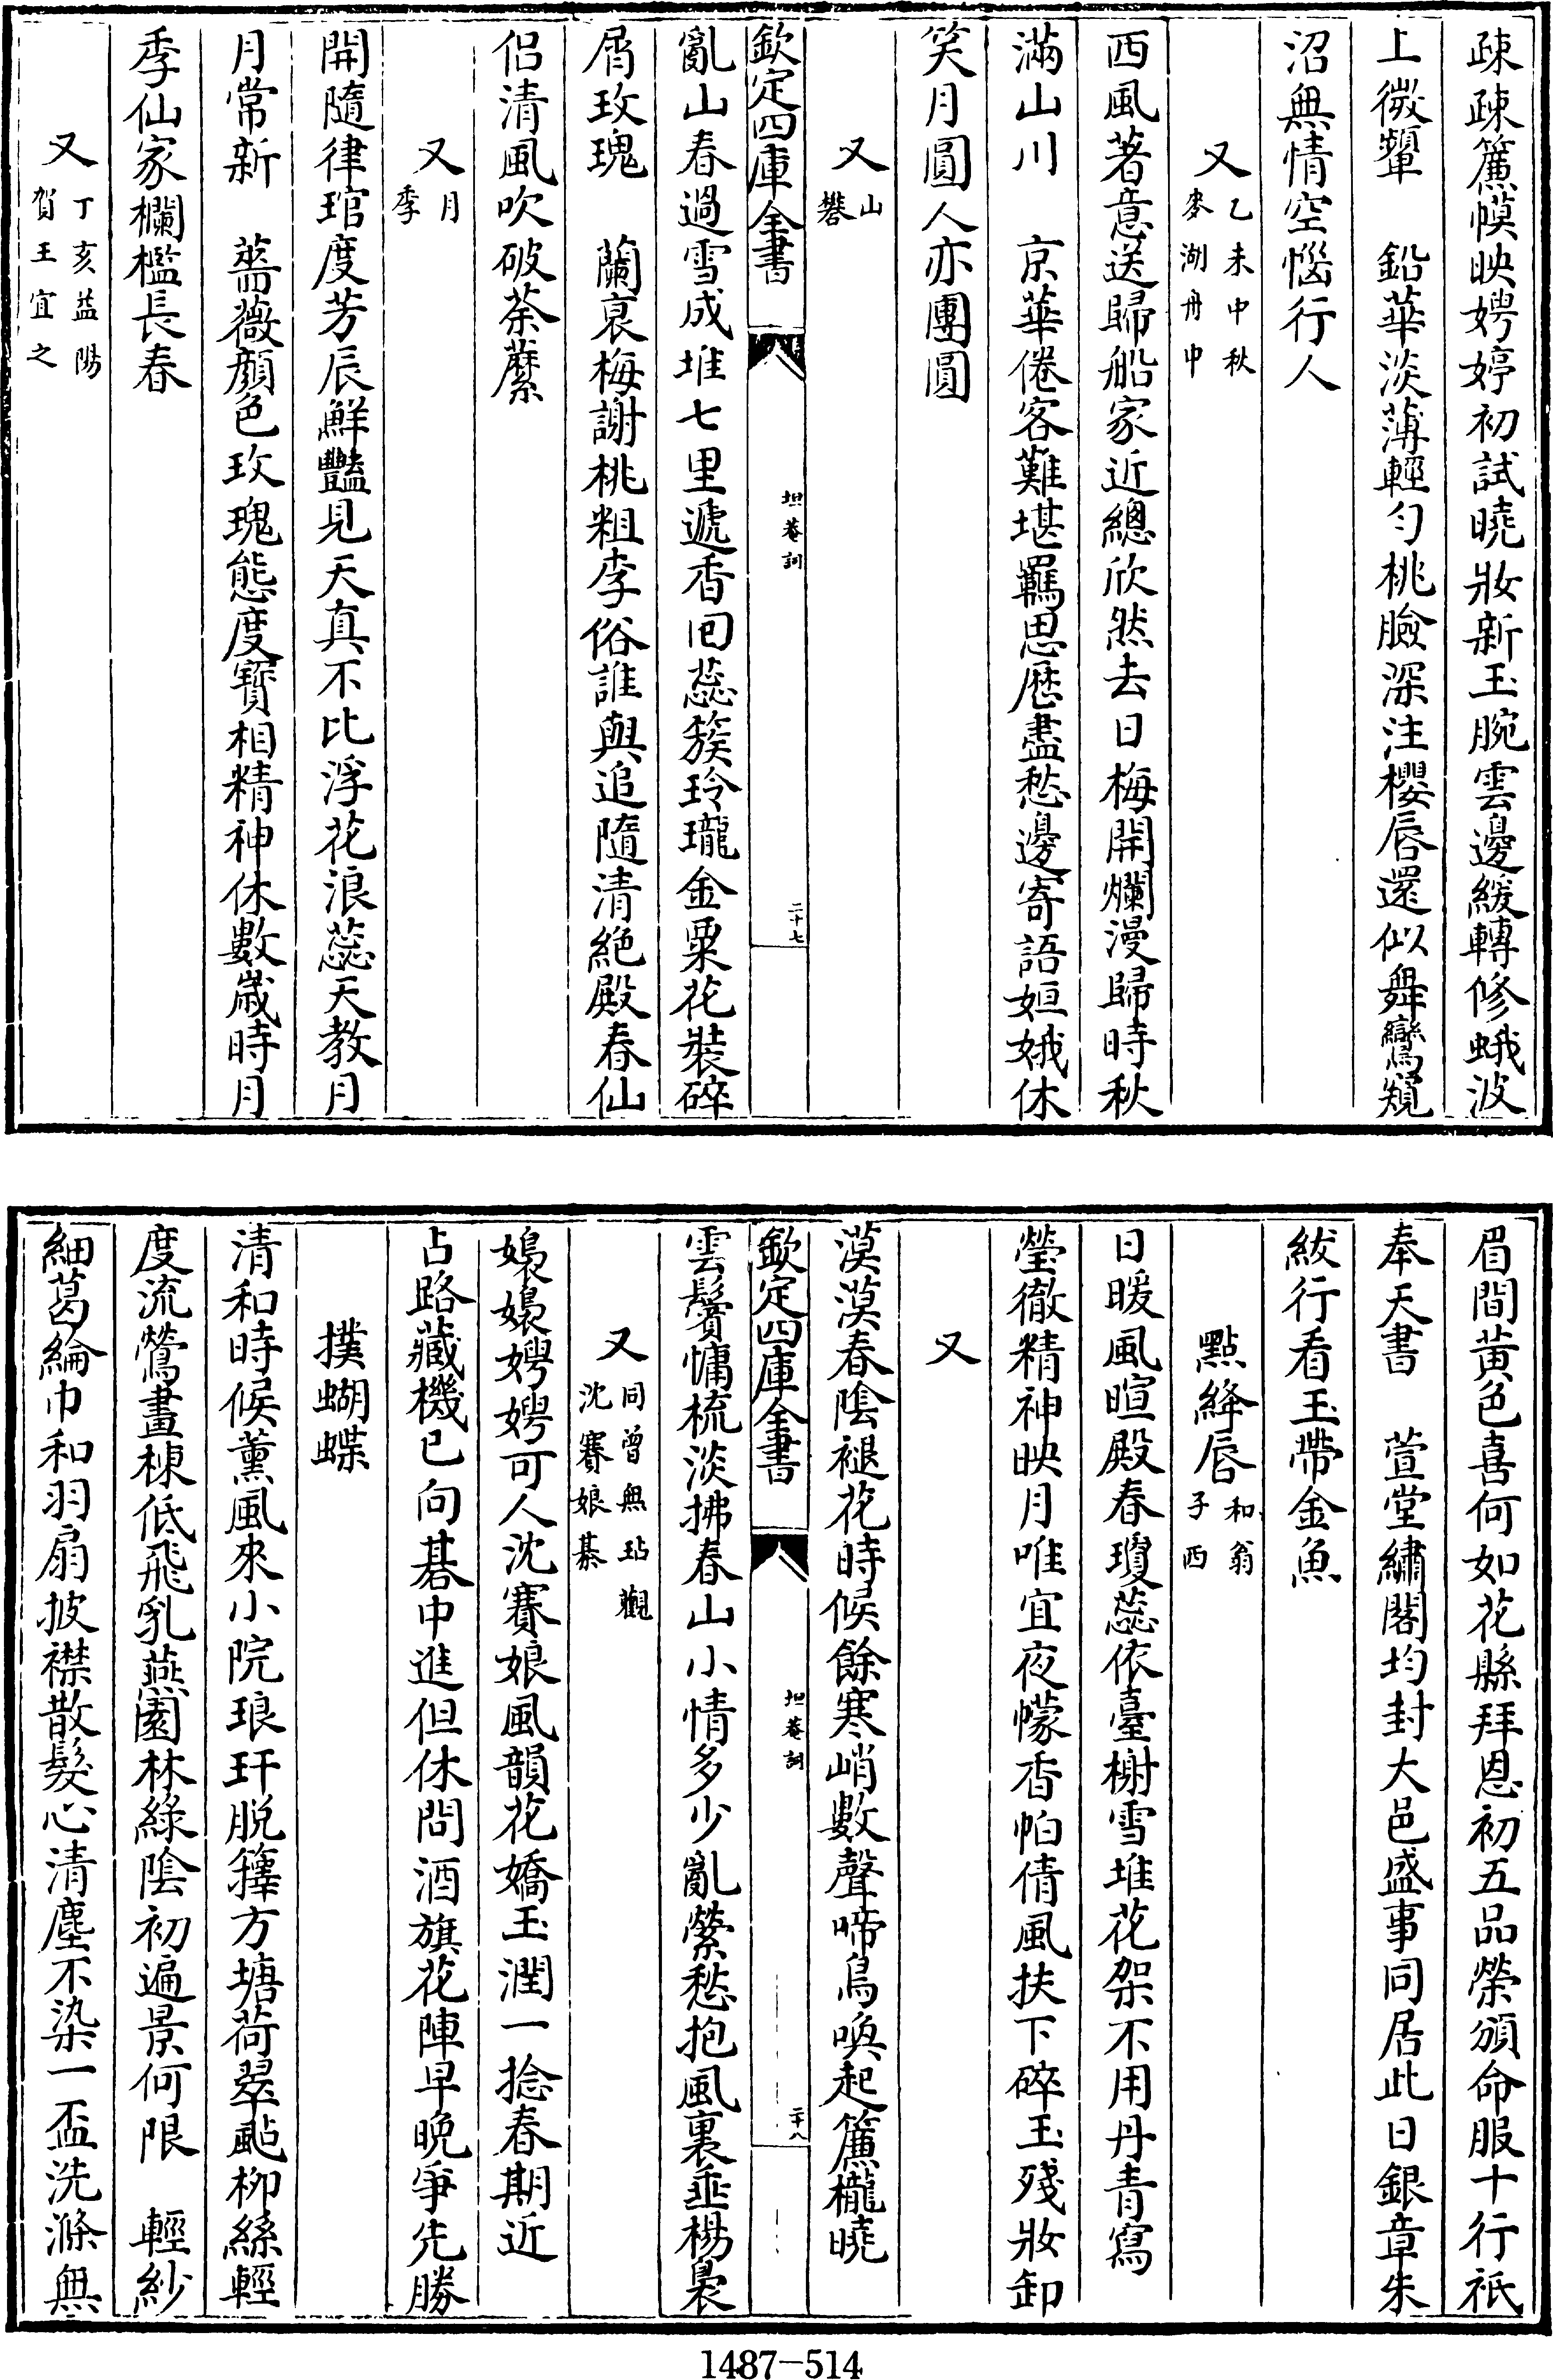 疎疎簾幙映娉婷初試曉妝新玉腕雲邊緩轉修蛾波
上微顰　鉛華淡薄輕勻桃臉深注櫻唇還似舞鸞窺
沼無情空惱行人
又乙未中秋麥湖舟中
西風著意送歸船家近總欣然去日梅開爛漫歸時秋
滿山川　京華倦客難堪羈思歷盡愁邊寄語姮娥休
笑月圓人亦團圓
又山礬
欽定四庫全書　坦菴詞　二十七
亂山春過雪成堆七里遞香回蕊簇玲瓏金粟花裝碎
屑玫瑰　蘭衰梅謝桃粗李俗誰與追隨清絶殿春仙
侣清風吹破荼蘼
又月季
開隨律琯度芳辰鮮豔見天真不比浮花浪蕊天教月
月常新　薔薇顔色玫瑰態度寳相精神休數歲時月
季仙家欄檻長春
又丁亥益陽賀王宜之
眉間黄色喜何如花縣拜恩初五品榮頒命服十行祇
奉天書　萱堂繡閣均封大邑盛事同居此日銀章朱
紱行看玉帶金魚
點絳唇和翁子西
日暖風暄殿春瓊蕊依臺榭雪堆花架不用丹青寫
瑩徹精神映月唯宜夜幪香帕倩風扶下碎玉殘妝卸
又
漠漠春陰褪花時候餘寒峭數聲啼鳥喚起簾櫳曉
欽定四庫全書　坦菴詞　二十八
雲鬢慵梳淡拂春山小情多少亂縈愁抱風裏垂楊裊
又同曾無玷觀沈賽娘棊
嬝嬝娉娉可人沈賽娘風韻花嬌玉潤一捻春期近
占路藏機已向碁中進但休問酒旗花陣早晚爭先勝
撲蝴蝶
清和時候薰風來小院琅玕脱籜方塘荷翠颭柳絲輕
度流鶯畫棟低飛乳燕園林緑陰初遍景何限　輕紗
細葛綸巾和羽扇披襟散髮心清塵不染一盃洗滌無
1487—514